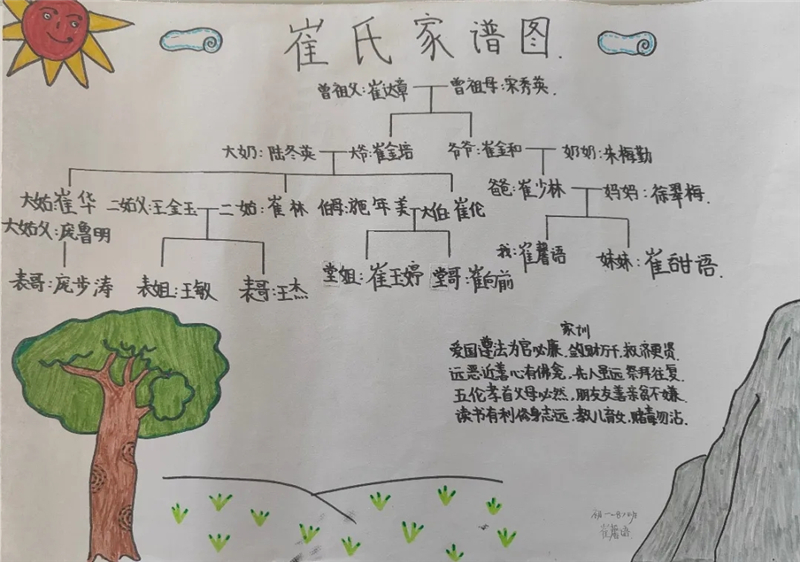 崔氏家谱图.
曾祖父:崔达章 曾祖母:宋秀英.
大奶:陆冬英 大爷:崔金培 爷爷:崔金和 奶奶:朱梅勤
大姑:崔华 二姑父:王金玉 二姑:崔林 伯母:施年美 大伯:崔伦 爸:崔少林 妈妈:徐翠梅.
大姑父:庞鲁明
我:崔馨语 妹妹:崔甜语.
表哥:庞步涛 表姐:王敏 表哥:王杰 堂姐:崔玉婷 堂哥:崔向前
家训
爱国遵法为官必廉.敛财万千.救济更贤.
远恶近善心有佛龛,先人虽远祭拜往复.
五伦孝首父母必然,朋友友善亲贫不嫌.
读书有利修身志远.教儿育女,赌毒勿沾.
崔馨语